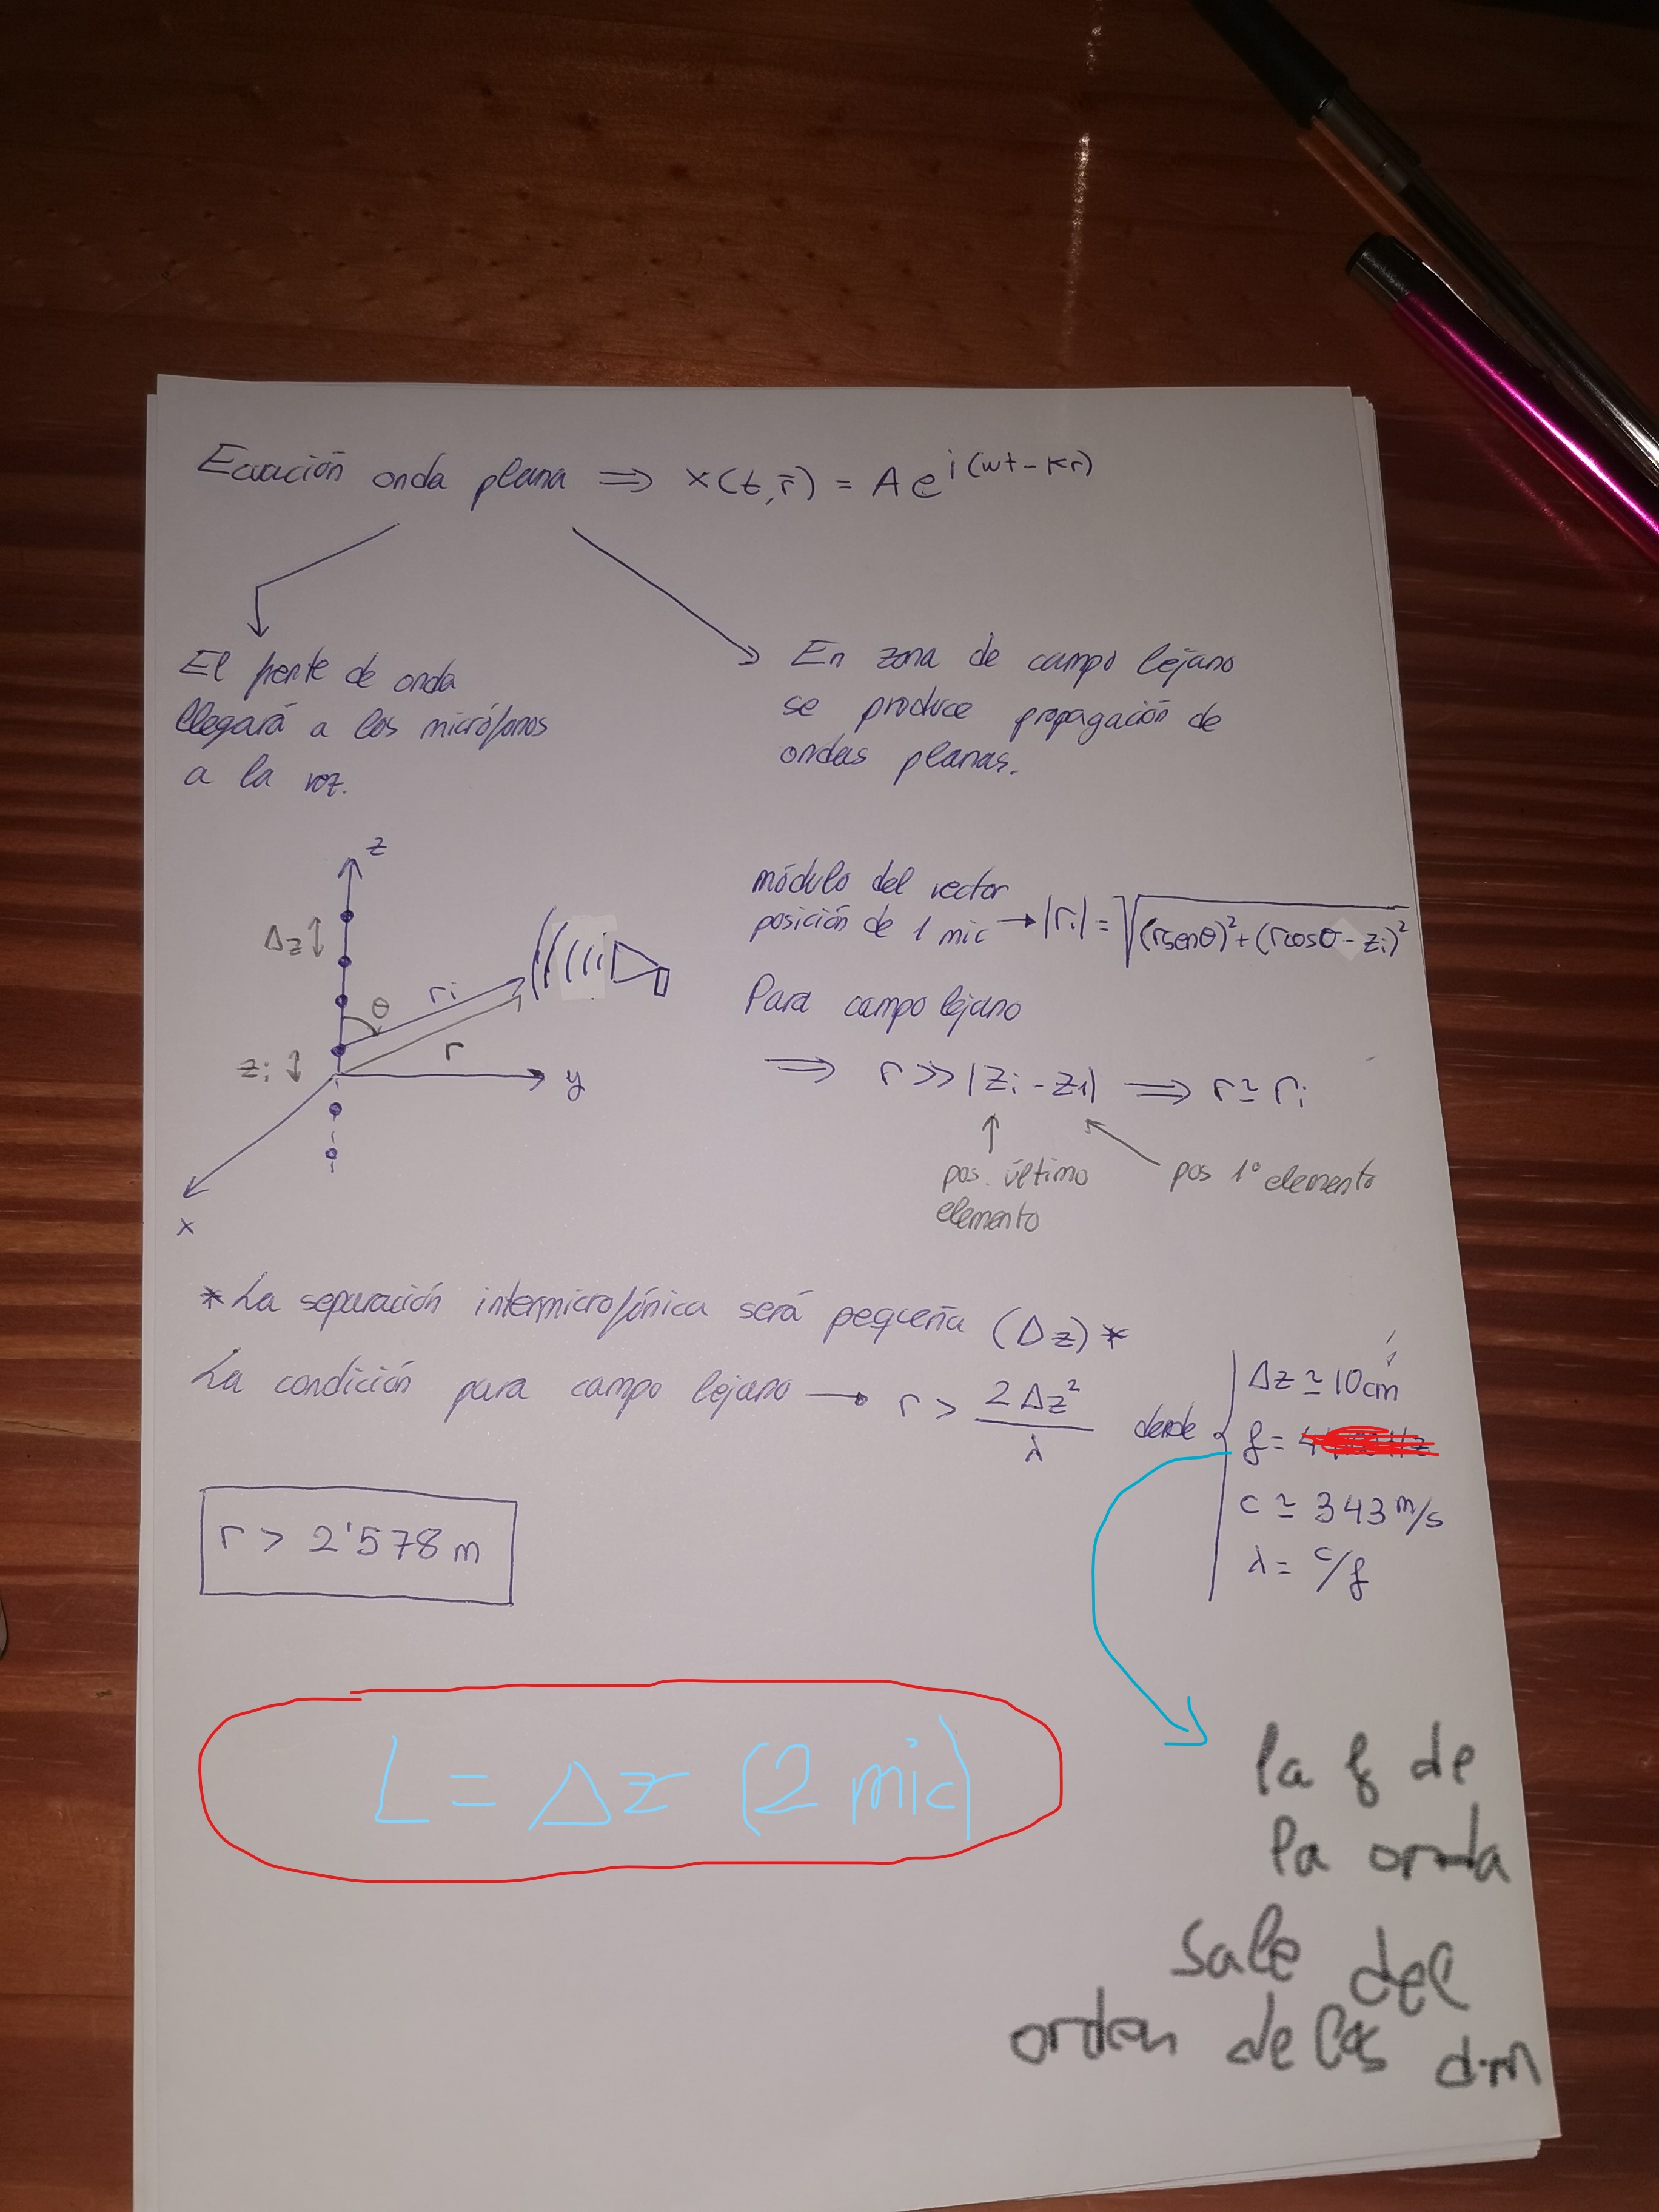 Ecuación onda plana ⇒ x(t,r̄) = A e^{i(wt-kr)}
El frente de onda
llegará a los micrófonos
a la voz.
En zona de campo lejano
se produce propagación de
ondas planas.
z
Δz
ri
θ
r
zi
y
x
módulo del vector
posición de 1 mic → |ri| = √((rsenθ)² + (rcosθ - zi)²)
Para campo lejano
⇒ r >> |zi - z1| ⇒ r ≃ ri
pos. último
elemento
pos 1º elemento
*La separación intermicrofónica será pequeña (Δz)*
La condición para campo lejano → r > 2Δz²/λ donde
Δz ≃ 10cm
f =
c ≃ 343 m/s
λ = c/f
r > 2'578 m
L = Δz (2 mic)
la f de
la onda
sale del
orden de las dm